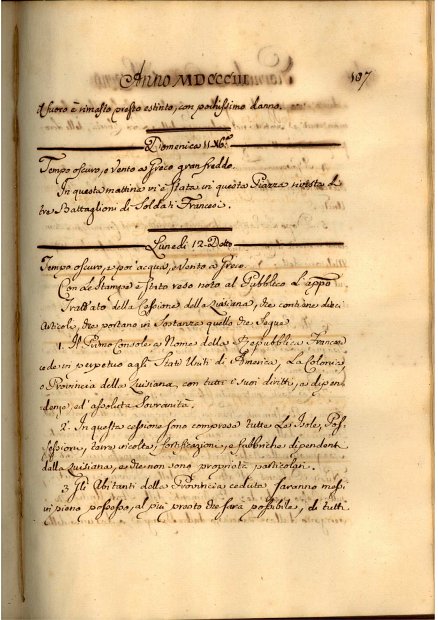 Anno MDCCCIII 107
il fuoco è rimasto presto estinto, con pochissimo danno.
Domenica 11 Xbre
Tempo oscuro, e Vento a Greco gran freddo.
In questa mattina vi è stata in questa Piazza rivista di
tre Battaglioni di Soldati Francesi.
Lunedì 12 Detto
Tempo oscuro, e poi acqua, e Vento a Greco.
Con le Stampe è stato reso noto al Pubblico l'appo
Trattato della Cessione della Luisiana, che contiene dieci
Articoli, che portano in sostanza quello che Segue
1. Il Primo Console a Nome della Repubblica Francese
cede in perpetuo agli Stati Uniti di America, La Colonia,
o Provincia della Luisiana con tutti i suoi diritti, e dipen
denze, ed assoluta Sovranità.
2. In questa cessione sono comprese tutte Le Isole, Pos
sessioni, terre incolte, fortificazioni, e fabbriche dipendenti
dalla Luisiana, e che non sono proprietà particolari.
3. Gli Abitanti della Provincia ceduta saranno messi
in pieno possesso, al più presto che sarà possibile, di tutti